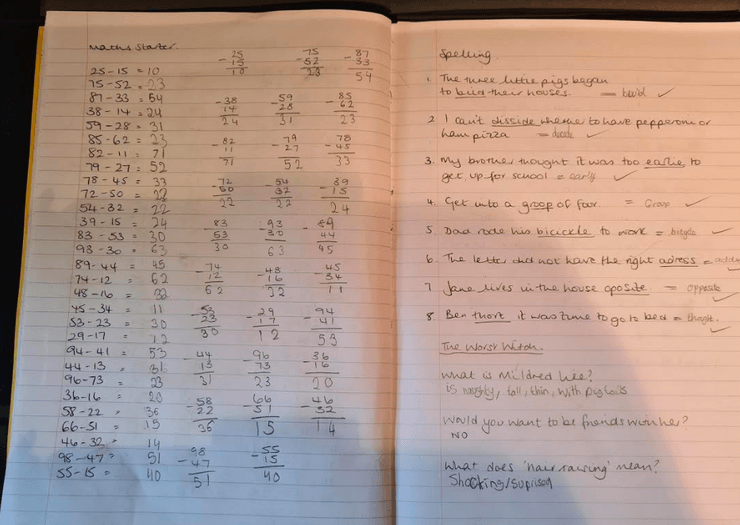 Maths Starter.
25-15 = 10
75-52 = 23
87-33 = 54
38-14 = 24
59-28 = 31
85-62 = 23
82-11 = 71
79-27 = 52
78-45 = 33
72-50 = 22
54-32 = 22
39-15 = 24
83-53 = 30
93-30 = 63
89-44 = 45
74-12 = 62
48-16 = 32
45-34 = 11
53-23 = 30
29-17 = 12
94-41 = 53
44-13 = 31
96-73 = 23
36-16 = 20
58-22 = 36
66-51 = 15
46-32 = 14
98-47 = 51
55-15 = 40
25 75 87
-15 -52 -33
10 23 54
38 59 85
-14 -28 -62
24 31 23
82 79 78
-11 -27 -45
71 52 33
72 54 39
-50 -32 -15
22 22 24
83 93 89
-53 -30 -44
30 63 45
74 48 45
-12 -16 -34
62 32 11
53 29 94
-23 -17 -41
30 12 53
44 96 36
-13 -73 -16
31 23 20
58 66 46
-22 -51 -32
36 15 14
98 55
-47 -15
51 40
Spelling
1. The three little pigs began
to biuld their houses. = build ✓
2 I can't disside whether to have pepperoni or
ham pizza = decide ✓
3. My brother thought it was too earlie to
get up for school = early ✓
4. Get into a groop of four. = ✓
5. Dad rode his bicickle to work = bicycle ✓
6. The letter did not have the right adress =
7 Jane lives in the house oposite. = opposite ✓
8 Ben thort it was time to go to bed = ✓
The Worst Witch.
What is Mildred like?
is naughty, tall, thin, with pigtails
Would you want to be friends with her?
NO
What does 'hair raising' mean?
Shocking/suprised